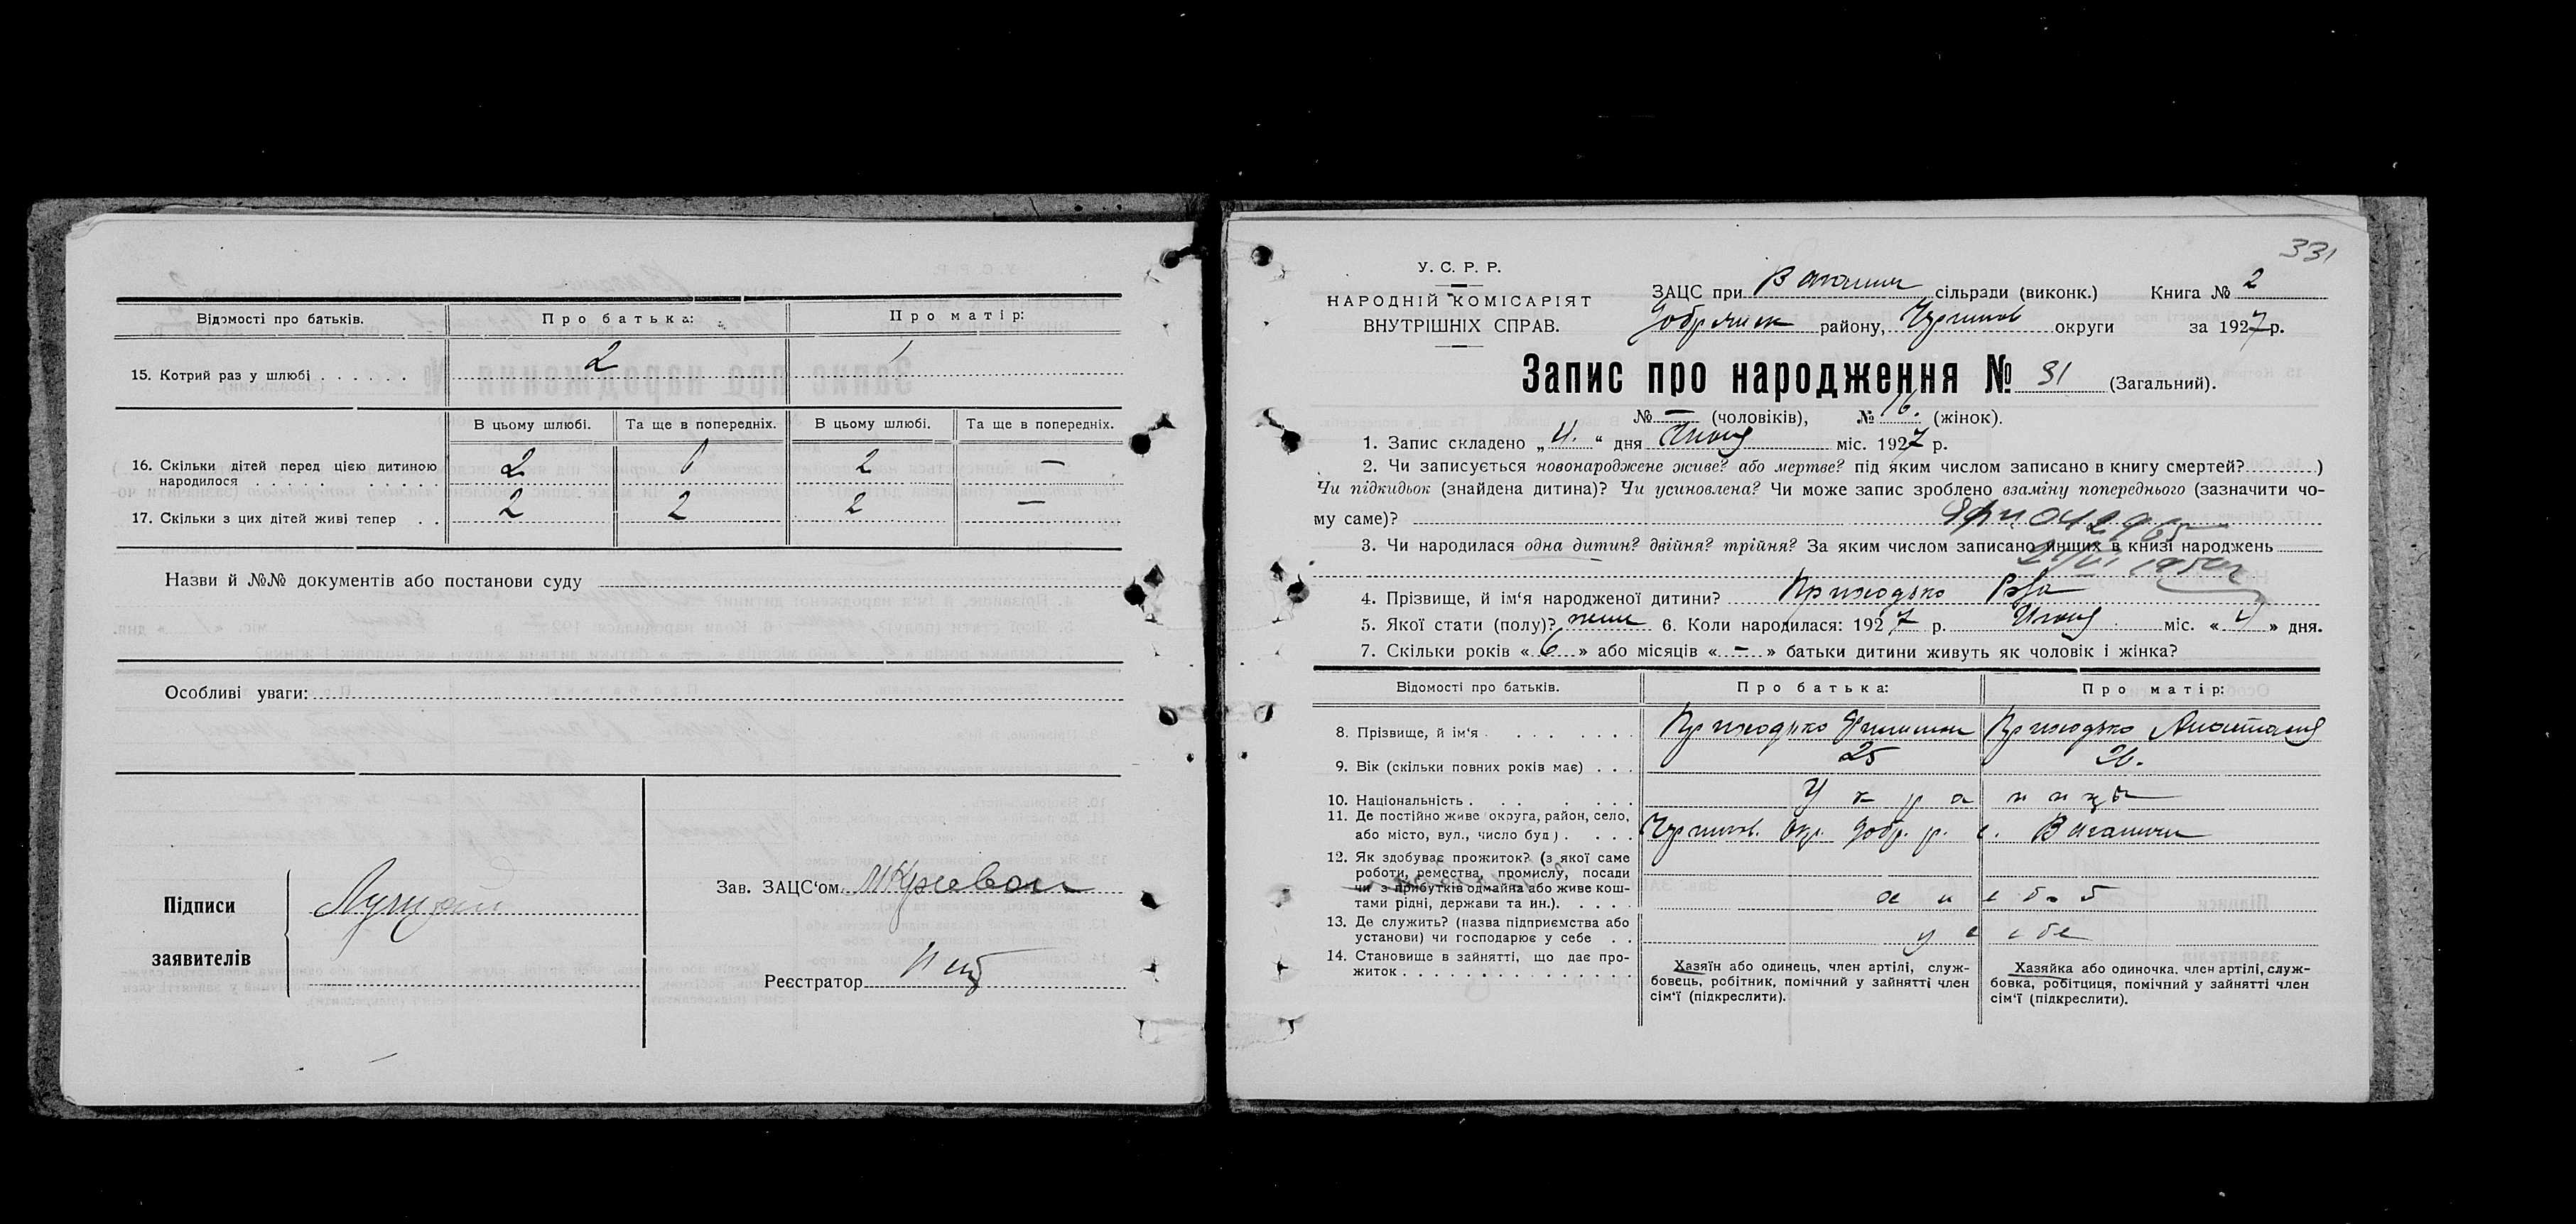 Відомості про батьків. Про батька: Про матір:
15. Котрий раз у шлюбі . . . . . . 2 1
В цьому шлюбі. Та ще в попередніх. В цьому шлюбі. Та ще в попередніх.
16. Скільки дітей перед цією дитиною 2 2 —
народилося . . . . . . . . . .
17. Скільки з цих дітей живі тепер . . 2 2 2 —
Назви й №№ документів або постанови суду
Особливі уваги:
Підписи
заявителів
Зав. ЗАЦС‘ом
Реєстратор
331
У. С. Р. Р.
НАРОДНІЙ КОМІСАРІЯТ
ВНУТРІШНІХ СПРАВ.
ЗАЦС при сільради (виконк.) Книга № 2
Добрянск району, Чернигов округи за 1927 р.
Запис про народження № 31 (Загальний).
№ — (чоловіків), № 16. (жінок).
1. Запис складено „ “ дня міс. 1927 р.
2. Чи записується новонароджене живе? або мертве? під яким числом записано в книгу смертей? )
Чи підкидьок (знайдена дитина)? Чи усиновлена? Чи може запис зроблено взаміну попереднього (зазначити чо-
му саме)?
3. Чи народилася одна дитин? двійня? трійня? За яким числом записано инших в книзі народжень
4. Прізвище, й ім‘я народженої дитини? Приходько
5. Якої стати (полу)? жин 6. Коли народилася: 1927 р. міс. « » дня.
7. Скільки років « 6 » або місяців « — » батьки дитини живуть як чоловік і жінка?
Відомості про батьків. Про батька: Про матір:
8. Прізвище, й ім‘я . . . . . . Приходько Приходько Анастасия
9. Вік (скільки повних років має) . . . 25 26.
10. Національність . . . . . . . Украинцы
11. Де постійно живе округа, район, село,
або місто, вул., число буд) . . . . Чернигов. Окр. Добр. р. с.
12. Як здобуває прожиток? (з якої саме
роботи, ремества, промислу, посади
чи з прибутків одмайна або живе кош-
тами рідні, держави та ин.). . . . . хлебоб
13. Де служить? (назва підприємства або
установи) чи господарює у себе . . у себе
14. Становище в зайнятті, що дає про-
житок . . . . . . . . . . . . . .
Хазяїн або одинець, член артілі, служ-
бовець, робітник, помічний у зайнятті член
сім‘ї (підкреслити).
Хазяйка або одиночка. член артілі, служ-
бовка, робітциця, помічний у зайнятті член
сім‘ї (підкреслити).